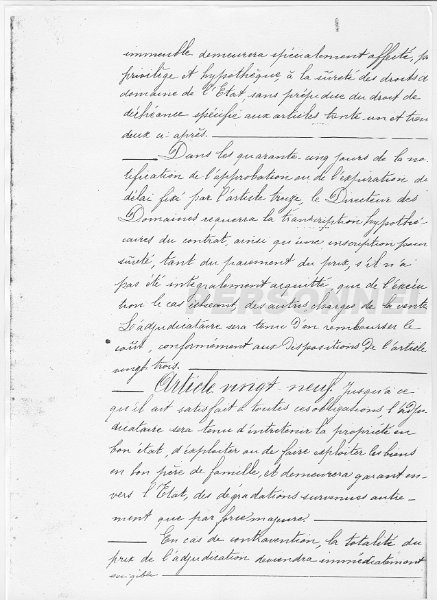 immeuble demeurera spécialement affecté, par
privilège et hypothèque à la sûreté des droits du
domaine de l'Etat, sans préjudice du droit de
déchéance spécifié aux articles trente-un et trente
deux ci-après.
Dans les quarante-cinq jours de la no-
tification de l'approbation ou de l'expiration du
délai fixé par l'article treize, le Directeur des
Domaines requerra la transcription hypothé-
caires du contrat, ainsi que une inscription pour
sûreté, tant du paiement du prix, s'il n'a
pas été intégralement acquitté, que de l'exécu-
tion le cas échéant des autres charges de la vente
L'adjudicataire sera tenu d'en rembourser le
coût, conformément aux dispositions de l'article
vingt trois.
Article vingt neuf. Jusqu'à ce
qu'il ait satisfait à toutes ces obligations l'adju-
dicataire sera tenu d'entretenir la propriété en
bon état, d'exploiter ou de faire exploiter les biens
en bon père de famille, et demeurera garant en-
vers l'Etat, des dégradations survenues autre-
ment que par force majeure.
En cas de contravention, la totalité du
prix de l'adjudication deviendra immédiatement
exigible